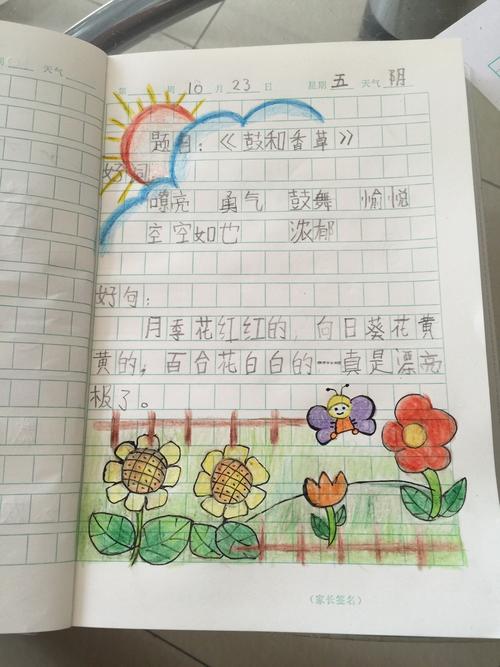 期 天气
第 周 10 月 23 日 星期 五 天气 阴
题目：《鼓和香草》
好词
嘹亮 勇气 鼓舞 愉悦
空空如也 浓郁
好句：
月季花红红的，向日葵花黄
黄的，百合花白白的……真是漂亮
极了。
（家长签名）